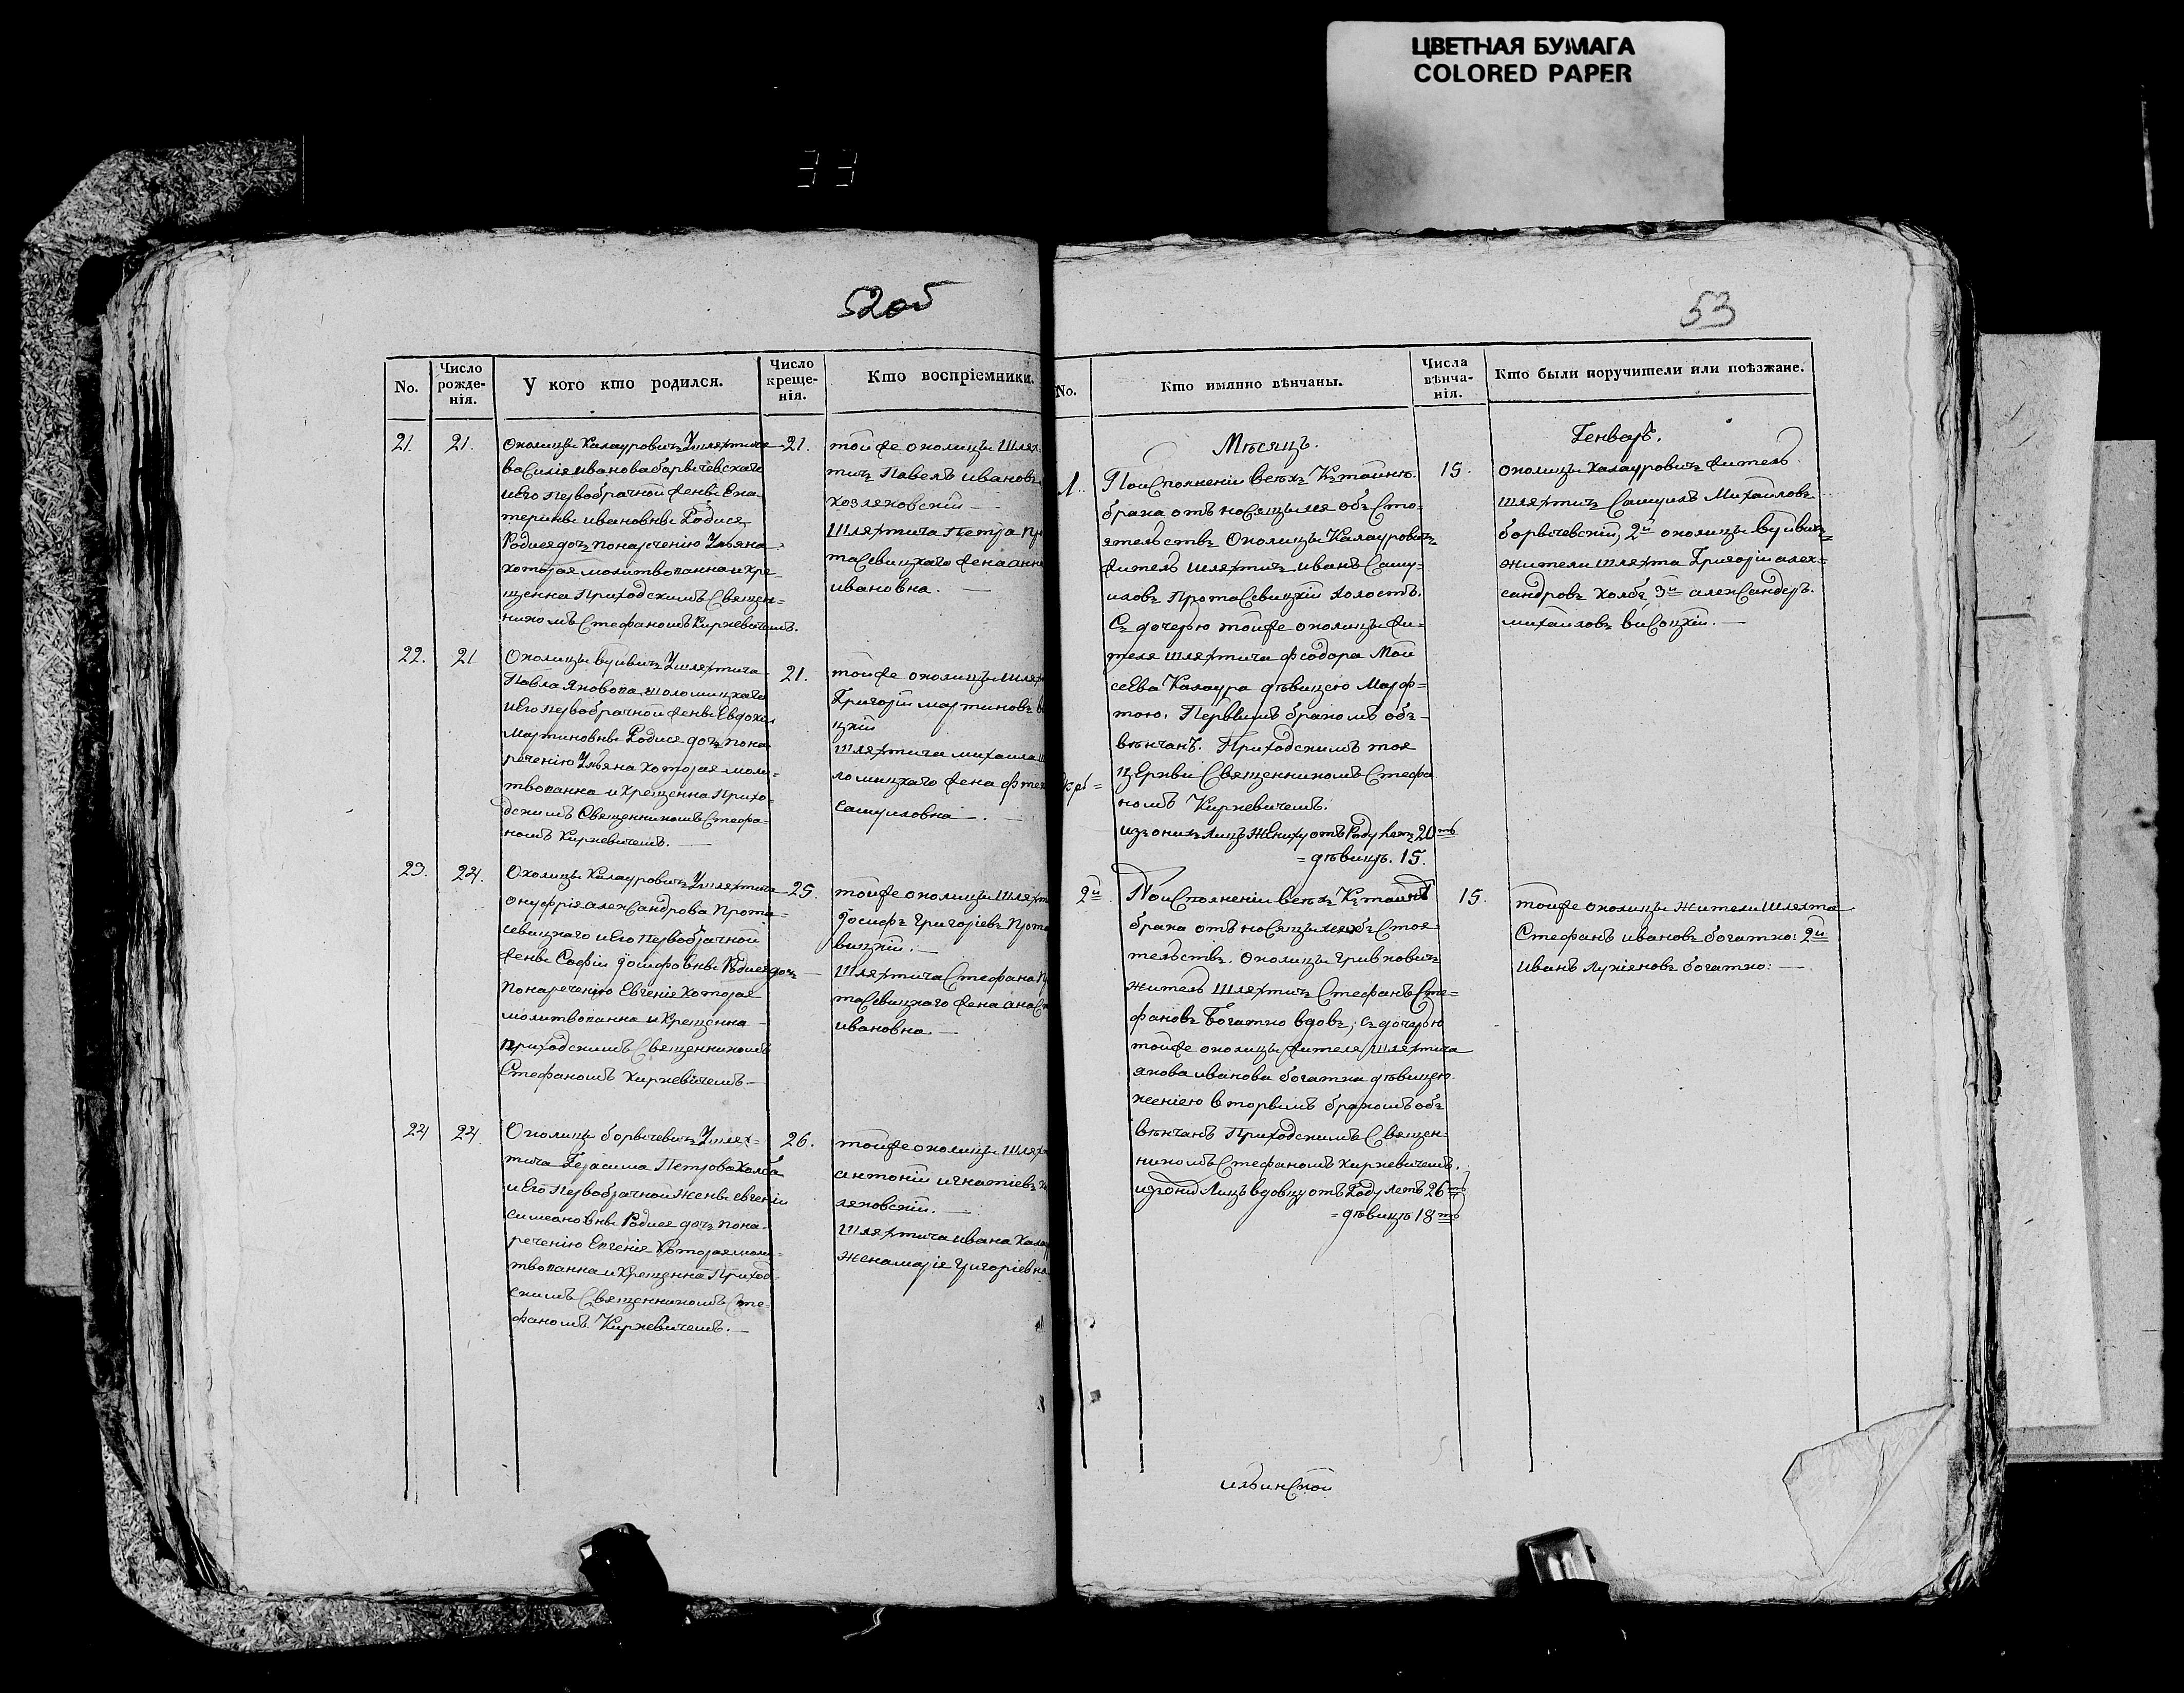 ЦВЕТНАЯ БУМАГА
COLORED PAPER
33
52об
No.
Число рожде-нія.
У кого кто родился.
Число креще-нія.
Кто воспріемники.
21. 21.
Околицы Калаурович У шляхтича
Василія иванова борычевскаго
и Его первобрачной жены Ека-
терины ивановны Родися
Родися доч понаречению Ульяна
которая молитвованна и кре-
щенна Приходскимъ Священ=
никомъ Стефаномъ Киркевичемъ.
21.
тойже околицы Шлях
тич Павелъ иванов
козляковскій —
Шляхтича Петра Пр
тасевицкаго жена анн
ивановна. —
22. 21
Околицы вуивич У шляхтича
Павла Яковова шоломицкаго
и Его первобрачной жены Евдокіи
Мартиновны Родися доч пона
речению Ульяна которая моли-
твованна и крещенна Прихо-
дскимъ Священникомъ Стефа-
номъ Киркевичемъ. —
21.
тойже околицы Шлях
Григорій мартинов
цкій
Шляхтича михаила
ломицкаго жена
самуиловна. —
23. 24.
Околицы Калаурович У шляхтича
онуфрія александрова Прота-
севицкаго и Его Первобрачной
жены Софіи іосифовны Родися доч —
понаречению Евгенія которая
молитвованна и крещенна —
приходскимъ Священникомъ
Стефаномъ киркевичемъ —
25.
тойже околицы Шляхт
іосиф григоріев Прота
вицкій. —
Шляхтича Стефана П
тасевицкаго жена анаст
ивановна. —
24 24.
Околицы борычевич У шлях-
тича Герасима Петрова Холба
и Его Первобрачной жены евгеніи
симеоновны Родися доч пона-
речению Евгенія Которая моли-
твованна и крещенна Приход-
скимъ Священникомъ Сте-
фаномъ Киркевичемъ. —
26.
тойже околицы Шлях
антоній игнатіев
ляковскій. —
Шляхтича ивана
жена марія григоріевна
53
No.
Кто имянно вѣнчаны.
Числа вѣнча-нія.
Кто были поручители или поѣзжане.
Мѣсяцъ.
Генварь.
1.
По исполненіи всѣх К таинст.
брака относящымся обсто-
ятельств Околицы Калаурович
житель шляхтич иванъ Саму-
илов Протасевицкій холостъ.
С дочерью тойже околицы жи-
теля шляхтича Феодора Мои
сеева Калаура дѣвицею Марф-
тою. Первымъ бракомъ об-
вѣнчанъ. Приходскимъ тоя
церкви Священникомъ Стефа
номъ Киркевичемъ.
из оних лицъ жениху отъ Роду лет 20ть
= дѣвицѣ. 15.
15.
околицы калаурович житель
шляхтич Самуилъ Михайлов
борычевскій, 2й околицы вуивич
жители шляхта Григорій алек=
сандров холб 3й александръ.
михайлов високцій. —
2й
По исполненіи всѣх К таинст
брака относящымся обстоя-
тельств. околицы гривкович
житель Шляхтич Стефанъ Сте=
фанов Богатко вдов, с дочерью
тойже околицы жителя шляхтича
якова иванова богатка дѣвицею
ксеніею вторымъ бракомъ об
вѣнчанъ Приходскимъ Священ-
никомъ Стефаномъ киркевичемъ.
из оних Лицъ вдовцу отъ Роду летъ 26ть
= дѣвицѣ 18ть
15.
тойже околицы жители шляхта
Стефанъ иванов богатко: 2й
иванъ лукіянов богатко: —
ильинской